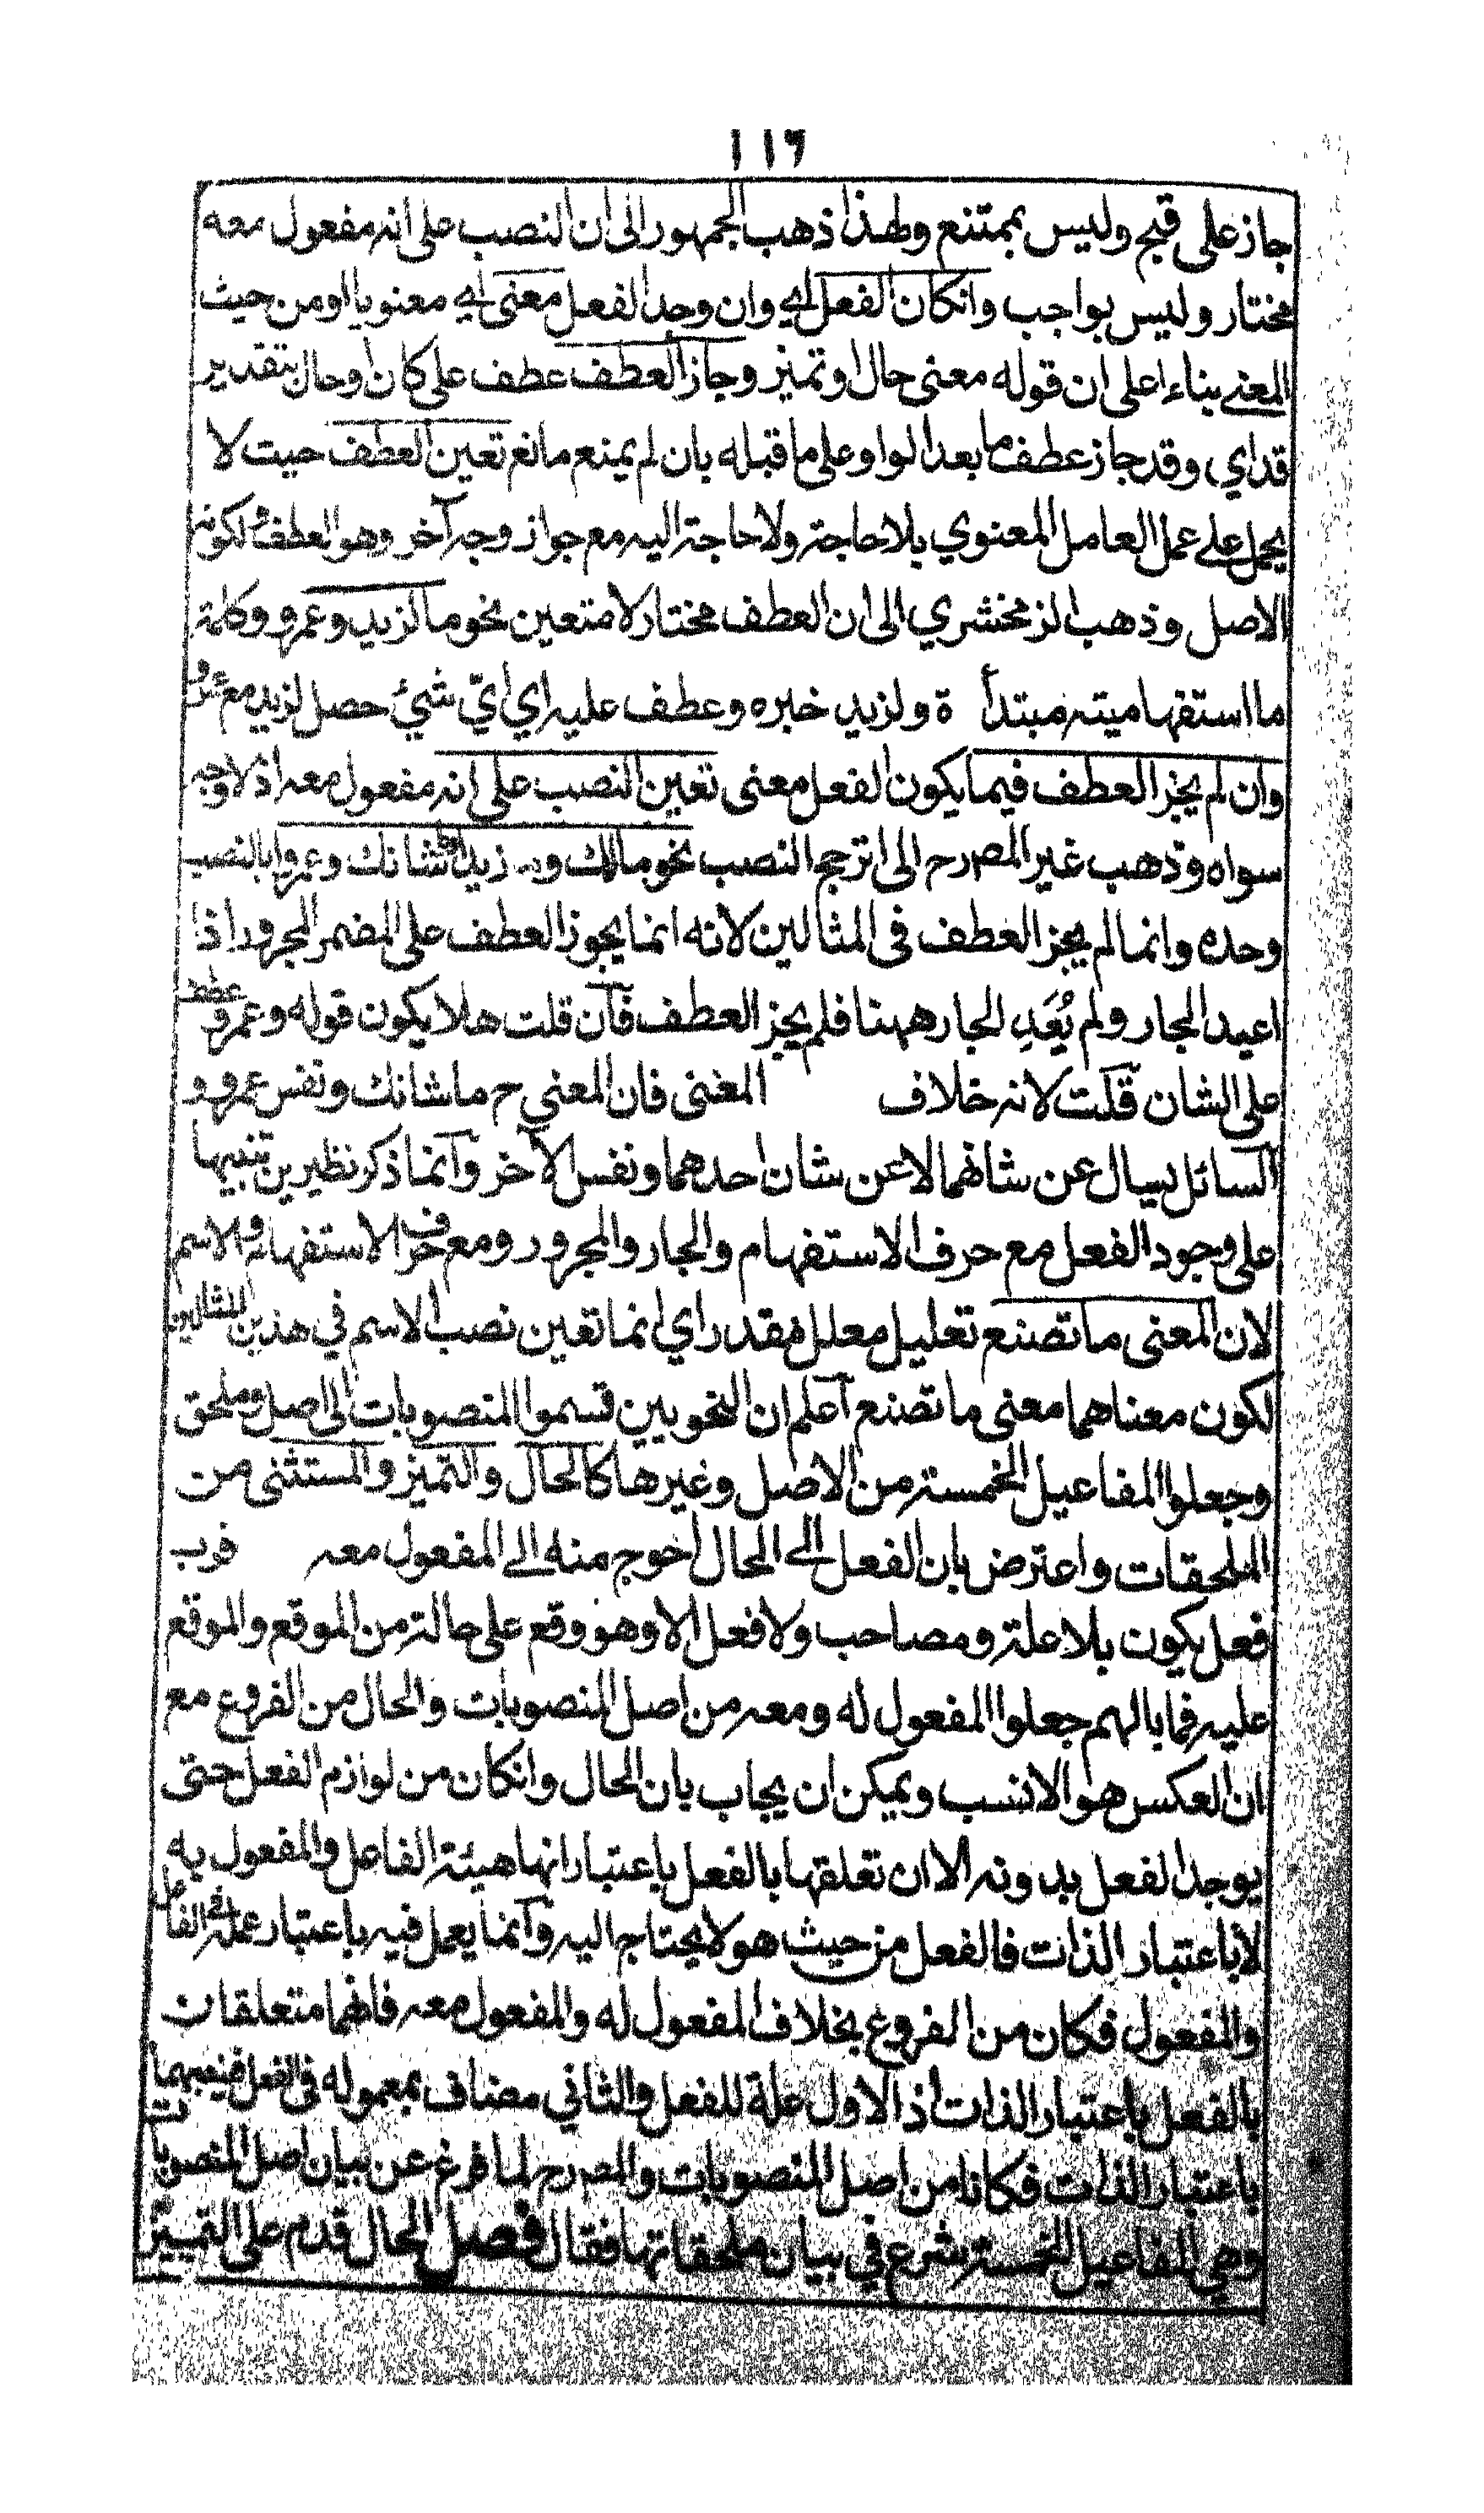 ١١٦
جاز على قبح وليس بممتنع ولهذا ذهب الجمهور الى ان النصب على انه مفعول معه
مختار وليس بواجب وانكان الفعل اي وان وجد الفعل معنى اي معنويا او من حيث
المعنى بناء اعلى ان قوله معنى حال او تميز وجاز العطف عطف على كان او حال بتقدير
قد اي وقد جاز عطف ما بعد الواو على ما قبله بان لم يمنع مانع تعين العطف حيث لا
يحمل على عمل العامل المعنوي بلا حاجة ولا حاجة اليه مع جواز وجه آخر وهو العطف لكونه
الاصل وذهب الزمخشري الى ان العطف مختار لا متعين نحو ما لزيد وعمرو وكلمة
ما استفهامية مبتدأ ة ولزيد خبره وعطف عليه اي ايّ شيئ حصل لزيد مع عمرو
وان لم يجز العطف فيما يكون الفعل معنى تعين النصب على انه مفعول معه اذ لا وجه
سواه وذهب غير المصرح الى اترجح النصب نحو مالك وزيدا وما شانك وعمروا بالنصب
وحده وانما لم يجز العطف فى المثالين لانه انما يجوز العطف على المضمر المجرور اذا
اعيد الجار ولم يُعَدِ الجار ههنا فلم يجز العطف فان قلت هلا يكون قوله وعمرو عطف
على الشان قلت لانه خلاف المعنى فان المعنى ح ما شانك ونفس عمرو و
السائل يسال عن شانهما لا عن شان احدهما ونفس الآخر وانما ذكر نظيرين تنبيها
على وجود الفعل مع حرف الاستفهام والجار والمجرور ومع حرف الاستفهام والاسم
لان المعنى ما تصنع تعليل معلل مقدر اي انما تعين نصب الاسم في هذين المثالين
لكون معناهما معنى ما تصنع اعلم ان النحويين قسموا المنصوبات الى اصل وملحق
وجعلوا المفاعيل الخمسة من الاصل وغيرها كالحال والتميز والمستثنى من
الملحقات واعترض بان الفعل الى الحال احوج منه الى المفعول معه فرب
فعل يكون بلا علة ومصاحب ولا فعل الا وهو وقع على حالة من الموقع والموقع
عليه فما بالهم جعلوا المفعول له ومعه من اصل المنصوبات والحال من الفروع مع
ان العكس هو الانسب ويمكن ان يجاب بان الحال وانكان من لوازم الفعل حتى
يوجد الفعل بدونه الا ان تعلقها بالفعل باعتبار انها هيئة الفاعل والمفعول به
لا باعتبار الذات فالفعل من حيث هو لا يحتاج اليه وانما يعمل فيه باعتبار عمله فى الفاعل
والمفعول فكان من الفروع بخلاف المفعول له والمفعول معه فانهما متعلقان
بالفعل باعتبار الذات اذ الاول علة للفعل والثاني مضاف بمعموله فى الفعل فينصبهما
باعتبار الذات فكانا من اصل المنصوبات والمصرح لما فرغ عن بيان اصل المنصوبات
وهي المفاعيل الخمسة شرع في بيان ملحقاتها فقال فصل الحال قدم على التمييز